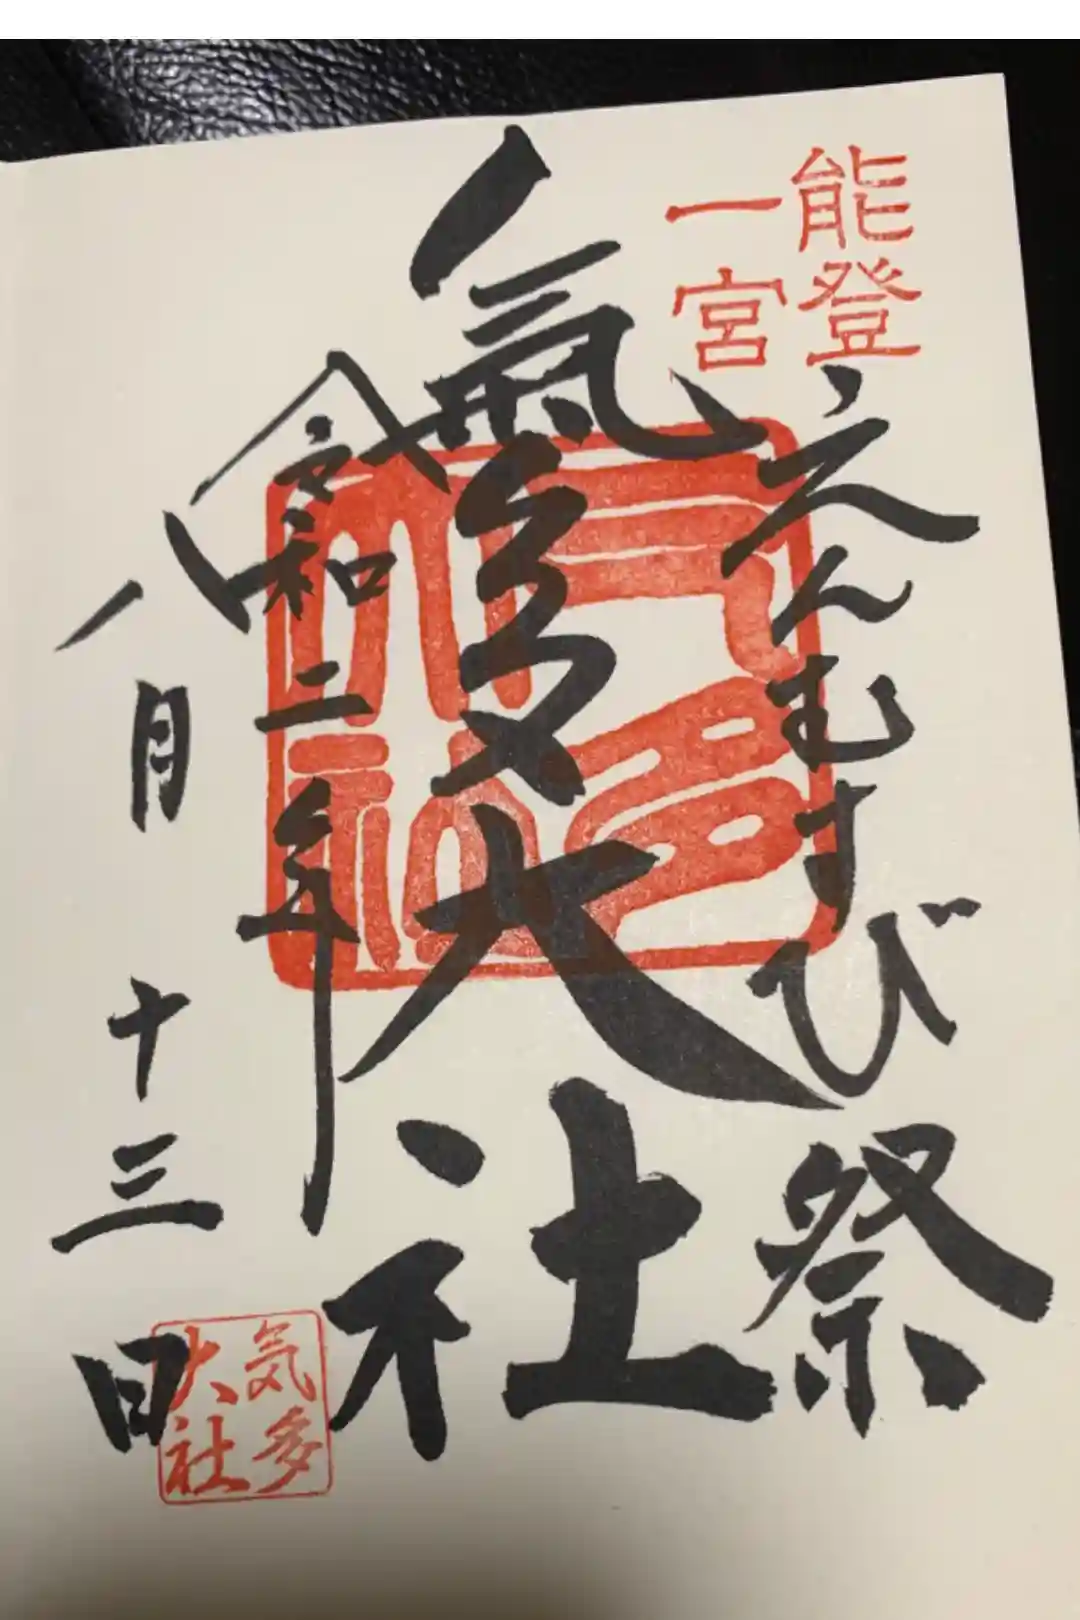 能登
一宮
えんむすび祭
氣多大社
令和二年
八月十三日
気多大社
気多
大社